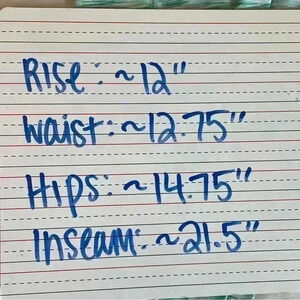 Rise: ~12"
waist: ~12.75"
Hips: ~14.75"
Inseam: ~21.5"